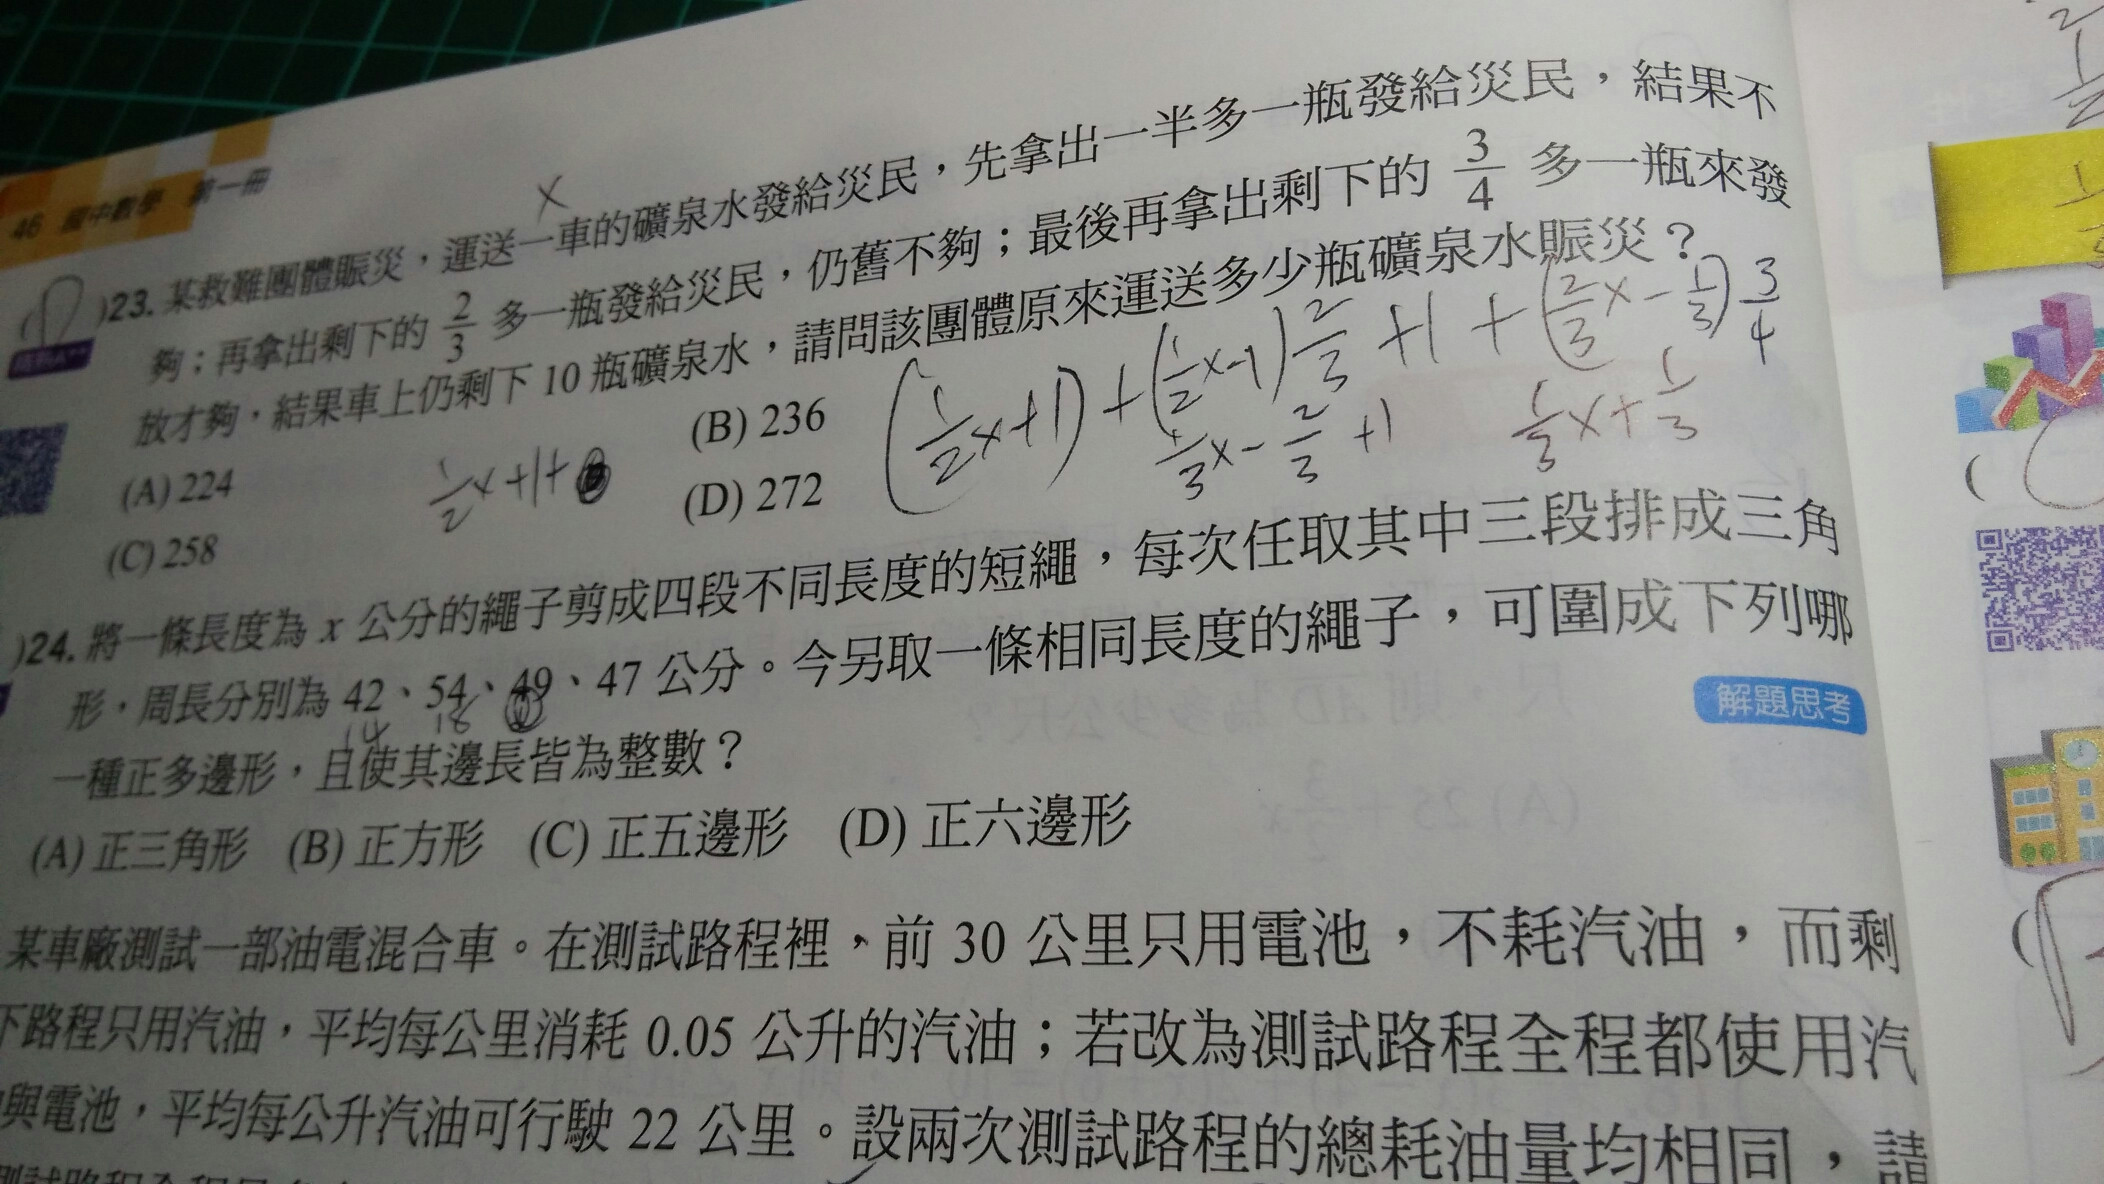 46 國中數學 第一冊
x
)23. 某救難團體賑災，運送一車的礦泉水發給災民，先拿出一半多一瓶發給災民，結果不
夠；再拿出剩下的 2/3 多一瓶發給災民，仍舊不夠；最後再拿出剩下的 3/4 多一瓶來發
放才夠，結果車上仍剩下 10 瓶礦泉水，請問該團體原來運送多少瓶礦泉水賑災？
(A) 224 (B) 236
(C) 258 (D) 272
1/2x+1+
(1/2x+1)+(1/2x-1)2/3+1+(2/3x-1/3)3/4
1/3x-2/3+1
1/3x+1/3
)24. 將一條長度為 x 公分的繩子剪成四段不同長度的短繩，每次任取其中三段排成三角
形，周長分別為 42、54、49、47 公分。今另取一條相同長度的繩子，可圍成下列哪
14 18
一種正多邊形，且使其邊長皆為整數？
解題思考
(A) 正三角形 (B) 正方形 (C) 正五邊形 (D) 正六邊形
某車廠測試一部油電混合車。在測試路程裡，前 30 公里只用電池，不耗汽油，而剩
下路程只用汽油，平均每公里消耗 0.05 公升的汽油；若改為測試路程全程都使用汽
與電池，平均每公升汽油可行駛 22 公里。設兩次測試路程的總耗油量均相同，請